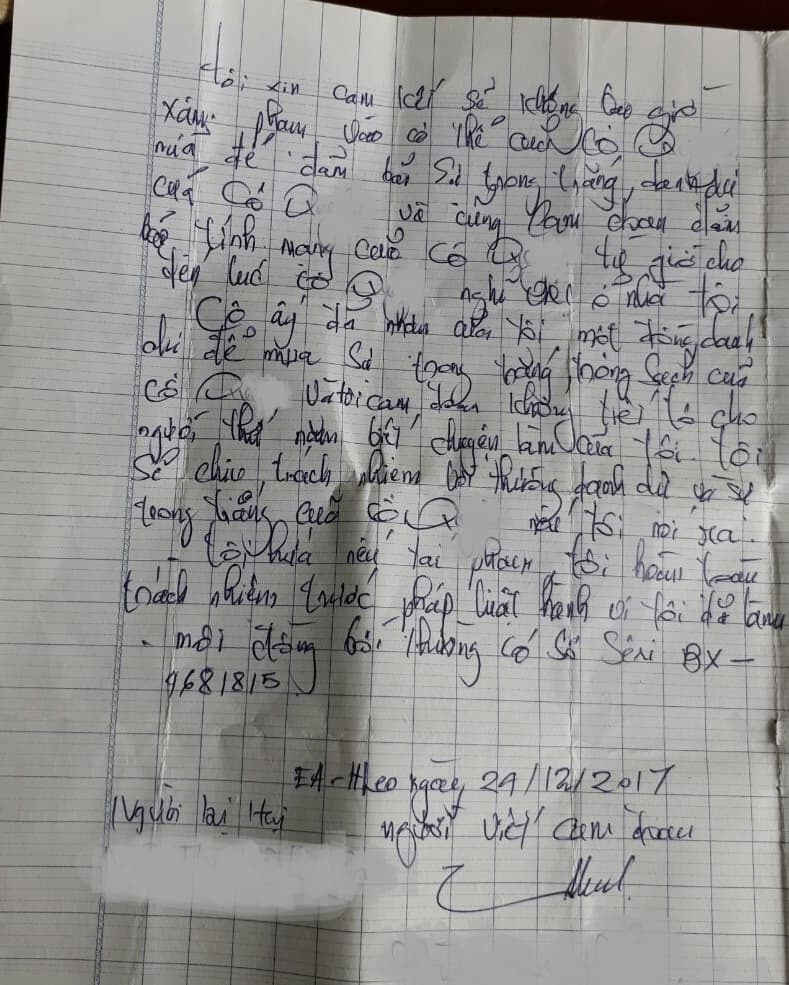 tôi xin cam kết sẽ không bao giờ
xâm phạm vào cơ thể của cô Q
nữa để đảm bảo sự trong trắng, danh dự
của Cô Q và cũng cam đoan đảm
bảo tính mạng của cô Q từ giờ cho
đến lúc cô Q nghỉ việc ở nhà tôi
Cô ấy đã nhận của tôi một đồng danh
dự để mua sự trong trắng trong sạch của
cô Q Và tôi cam đoan không tiết lộ cho
người thứ năm biết chuyện làm của tôi. Tôi
Sẽ chịu trách nhiệm bồi thường danh dự và sự
trong trắng của cô Q nếu tôi nói ra.
- tôi hứa nếu tái phạm tôi hoàn toàn
trách nhiệm trước pháp luật hành vi tôi đã làm
- một đồng bồi thường có số Sêri BX-
4681815
EA-Hleo ngày 24/12/2017
Người lại Hại
người viết cam đoan